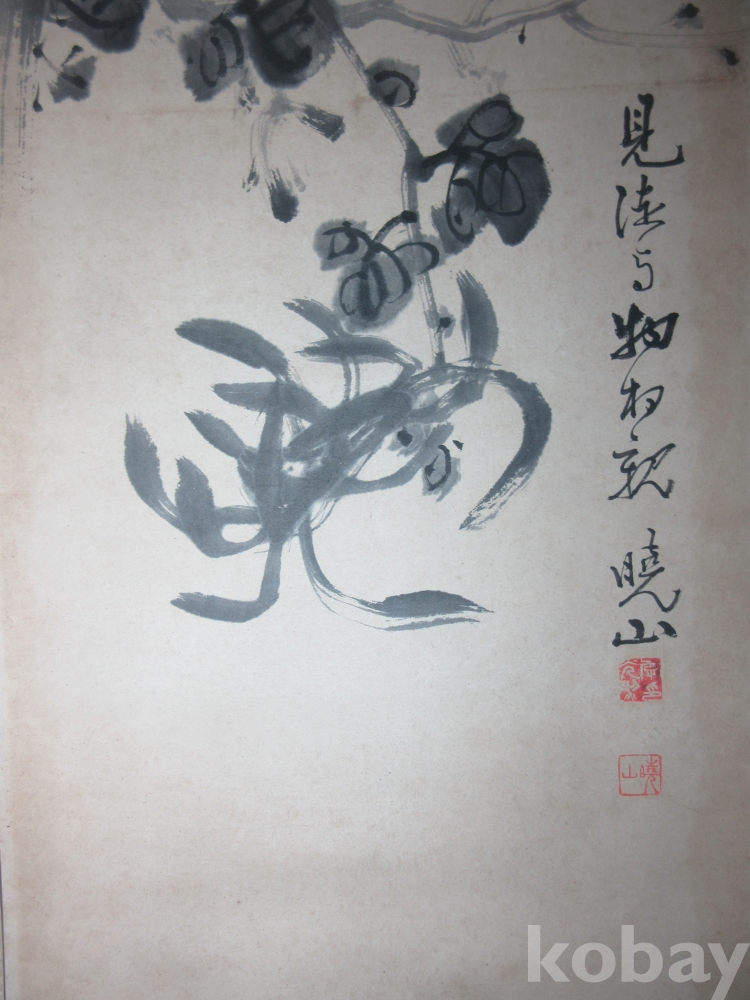 見 与物相親 曉山
曉山
kobay